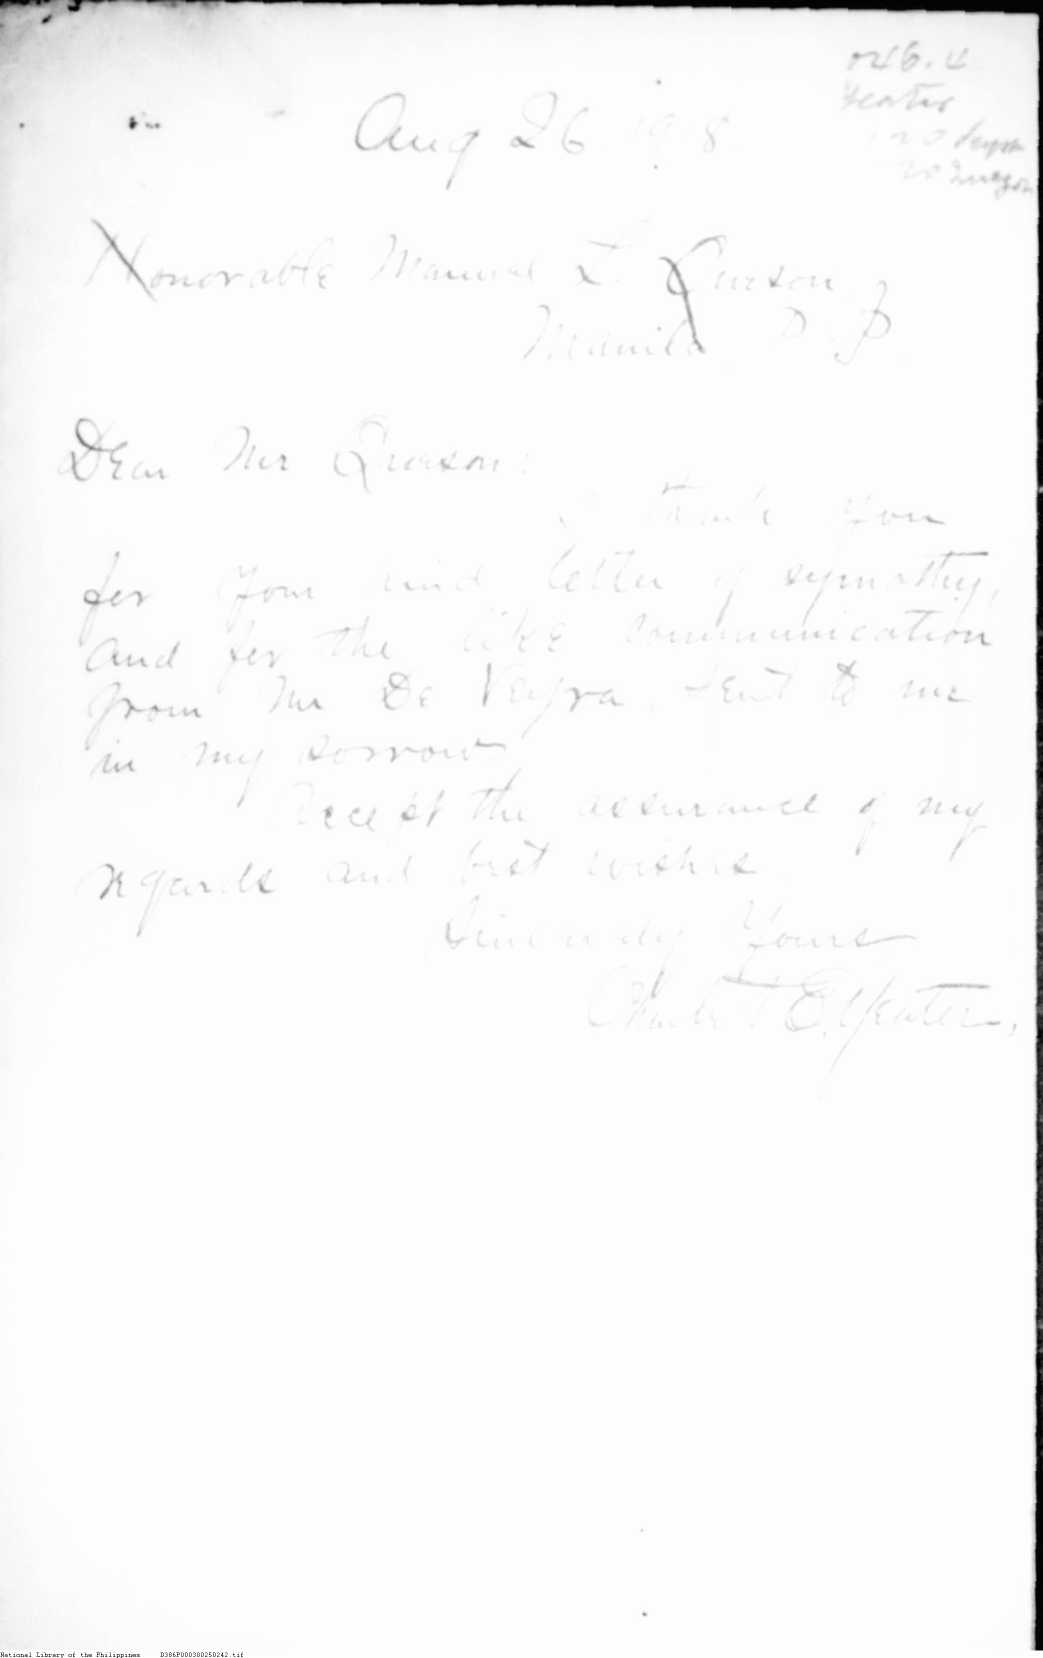 046.4
Yeater
Aug 26 1918
Honorable Manuel L. Quezon
Manila P. I.
Dear Mr Quezon:
I thank you
for your kind letter of sympathy,
and for the like communication
from Mr De Veyra, sent to me
in my sorrow
Accept the assurance of my
regards and best wishes
Sincerely Yours
Charles E. Yeater.
National Library of the Philippines D386P000300250242.tif